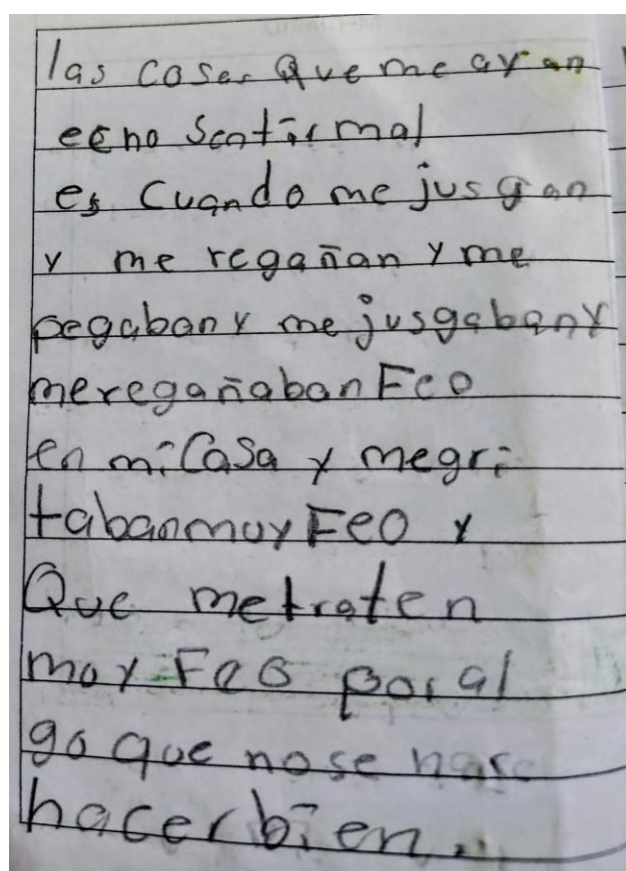 las cosas Que me ayan
echo Sentir mal
es Cuando me jusgan
y me regañan y me
pegaban y me jusgaban y
me regañaban Feo
en mi Casa y me gri
taban muy Feo y
Que me traten
muy Feo por al
go que no se
hacer bien..